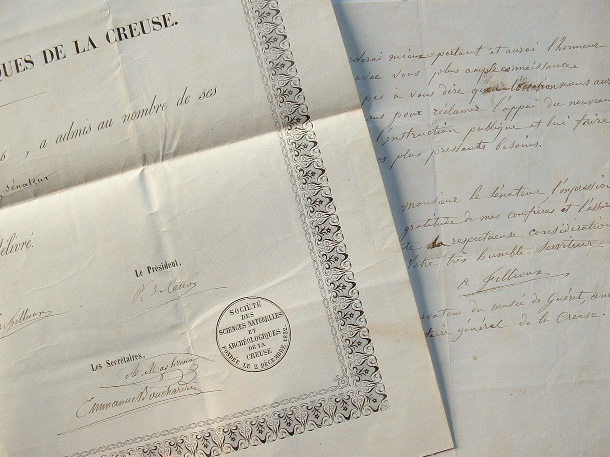 QUES DE LA CREUSE.
6 , a admis au nombre de ses
Sénateur
délivré.
Le Président,
Les Secrétaires,
Emmanuel Bouchardon
SOCIÉTÉ
DES
SCIENCES NATURELLES
ET
ARCHÉOLOGIQUES
DE LA
CREUSE
FONDÉE LE 2 DÉCEMBRE 1832
serai mieux portant et aurai l'honneur
avec vous plus ample connaissance
pas à vous dire que
pour réclamer l'appui du nouveau
l'instruction publique et lui faire
plus pressants besoins.
monsieur le sénateur l'expression
gratitude de mes confrères et
la respectueuse considération
Votre très humble serviteur
P. Fillioux
du musée de Guéret,
général de la Creuse.